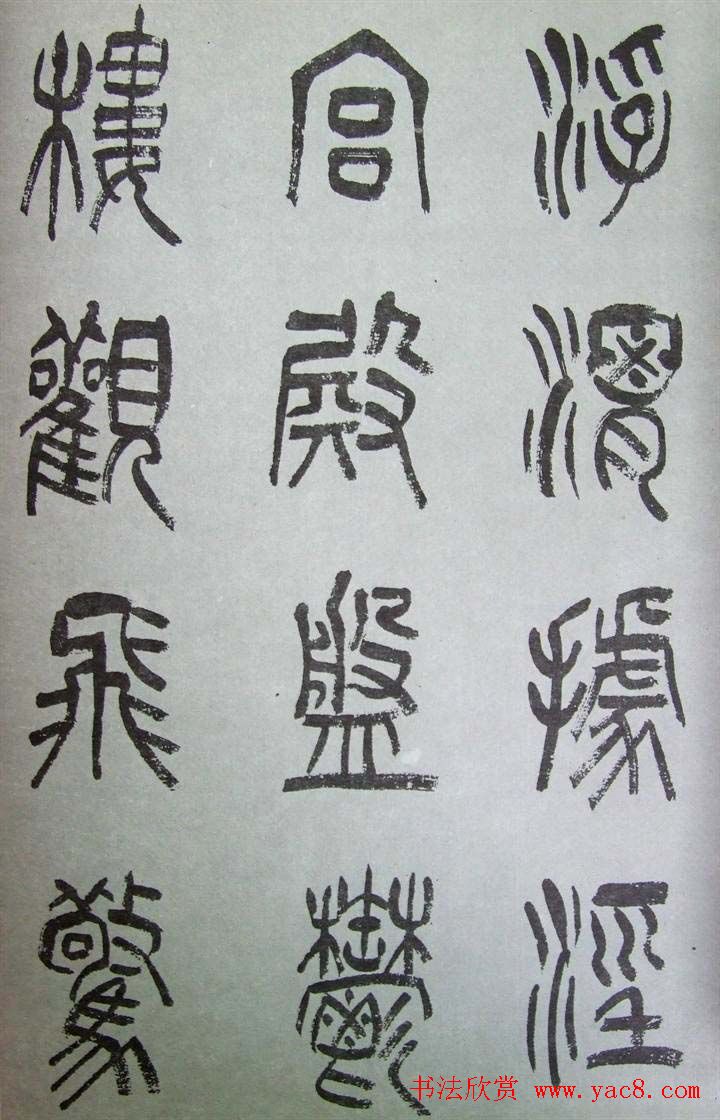 浮渭據涇
宮殿盤鬱
樓觀飛驚
书法欣赏 www.yac8.com